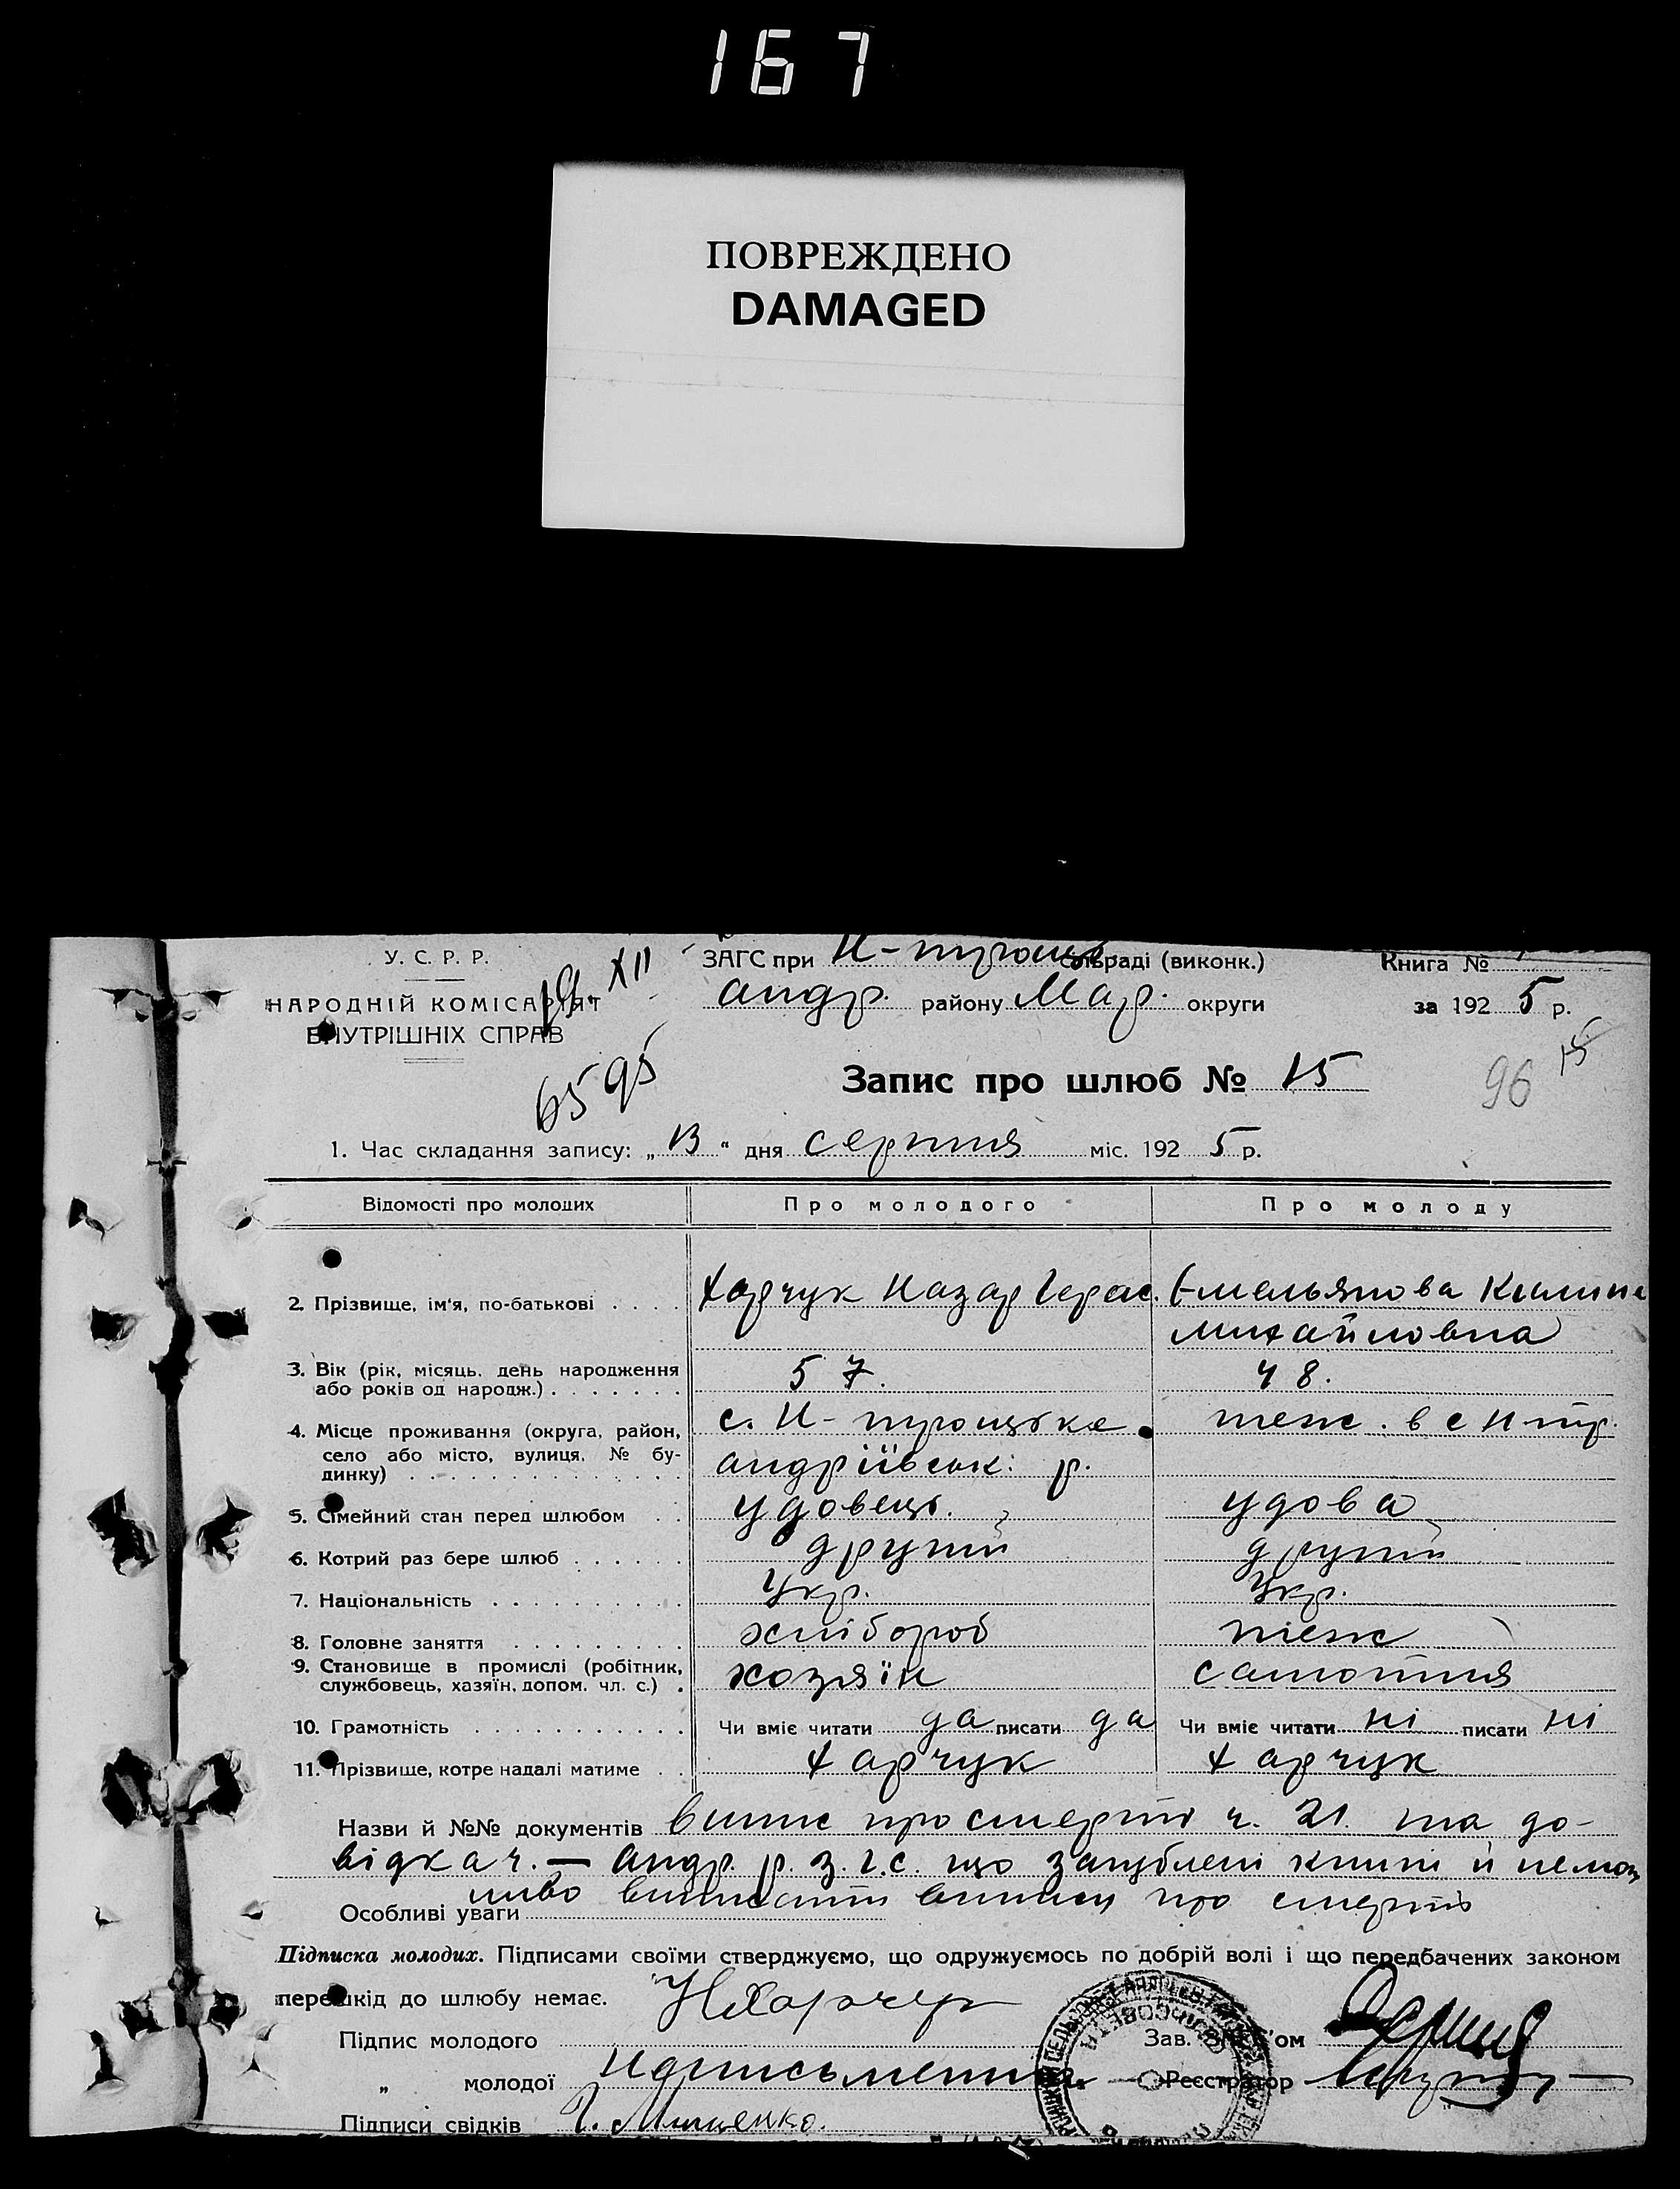 167
ПОВРЕЖДЕНО
DAMAGED
У. С. Р. Р.
НАРОДНІЙ КОМІСАРІЯТ
ВНУТРІШНІХ СПРАВ
19. XII
6595
ЗАГС при Н-троицьк. сільраді (виконк.)
андр. району Мар. округи
Книга №
за 192 5 р.
15
96
Запис про шлюб № 15
1. Час складання запису: „ 13 “ дня серпня міс. 192 5 р.
Відомості про молодих Про молодого Про молоду
2. Прізвище, ім'я, по-батькові . . . . Харчук Назар Герас. Емельянова Килина
михайловна
3. Вік (рік, місяць, день народження
або років од народж.) . . . . . . . 57. 48.
4. Місце проживання (округа, район, с. Н-троицьке теж. в с Н тр.
село або місто, вулиця, № бу-
динку) . . . . . . . . . . . . . . андріївськ: р.
5. Сімейний стан перед шлюбом . . удовець. удова
6. Котрий раз бере шлюб . . . . . . другий другий
7. Національність . . . . . . . . . . Укр. Укр.
8. Головне заняття . . . . . . . . . хлібороб теж
9. Становище в промислі (робітник,
службовець, хазяїн, допом. чл. с.) . хозяїн самотня
10. Грамотність . . . . . . . . . . . Чи вміє читати да писати да Чи вміє читати ні писати ні
11. Прізвище, котре надалі матиме . . Харчук Харчук
Назви й №№ документів Випис про смерть ч. 21. та до-
відка ч. — Андр. р. з. г. с. що загублені книги й немож
ливо виписати виписи про смерть
Особливі уваги
Підписка молодих. Підписами своїми стверджуємо, що одружуємось по добрій волі і що передбачених законом
перешкід до шлюбу немає.
Підпис молодого НХарчук
„ молодої Неписьменна.
Підписи свідків Г. Мищенко.
Зав. ом
Реєстратор